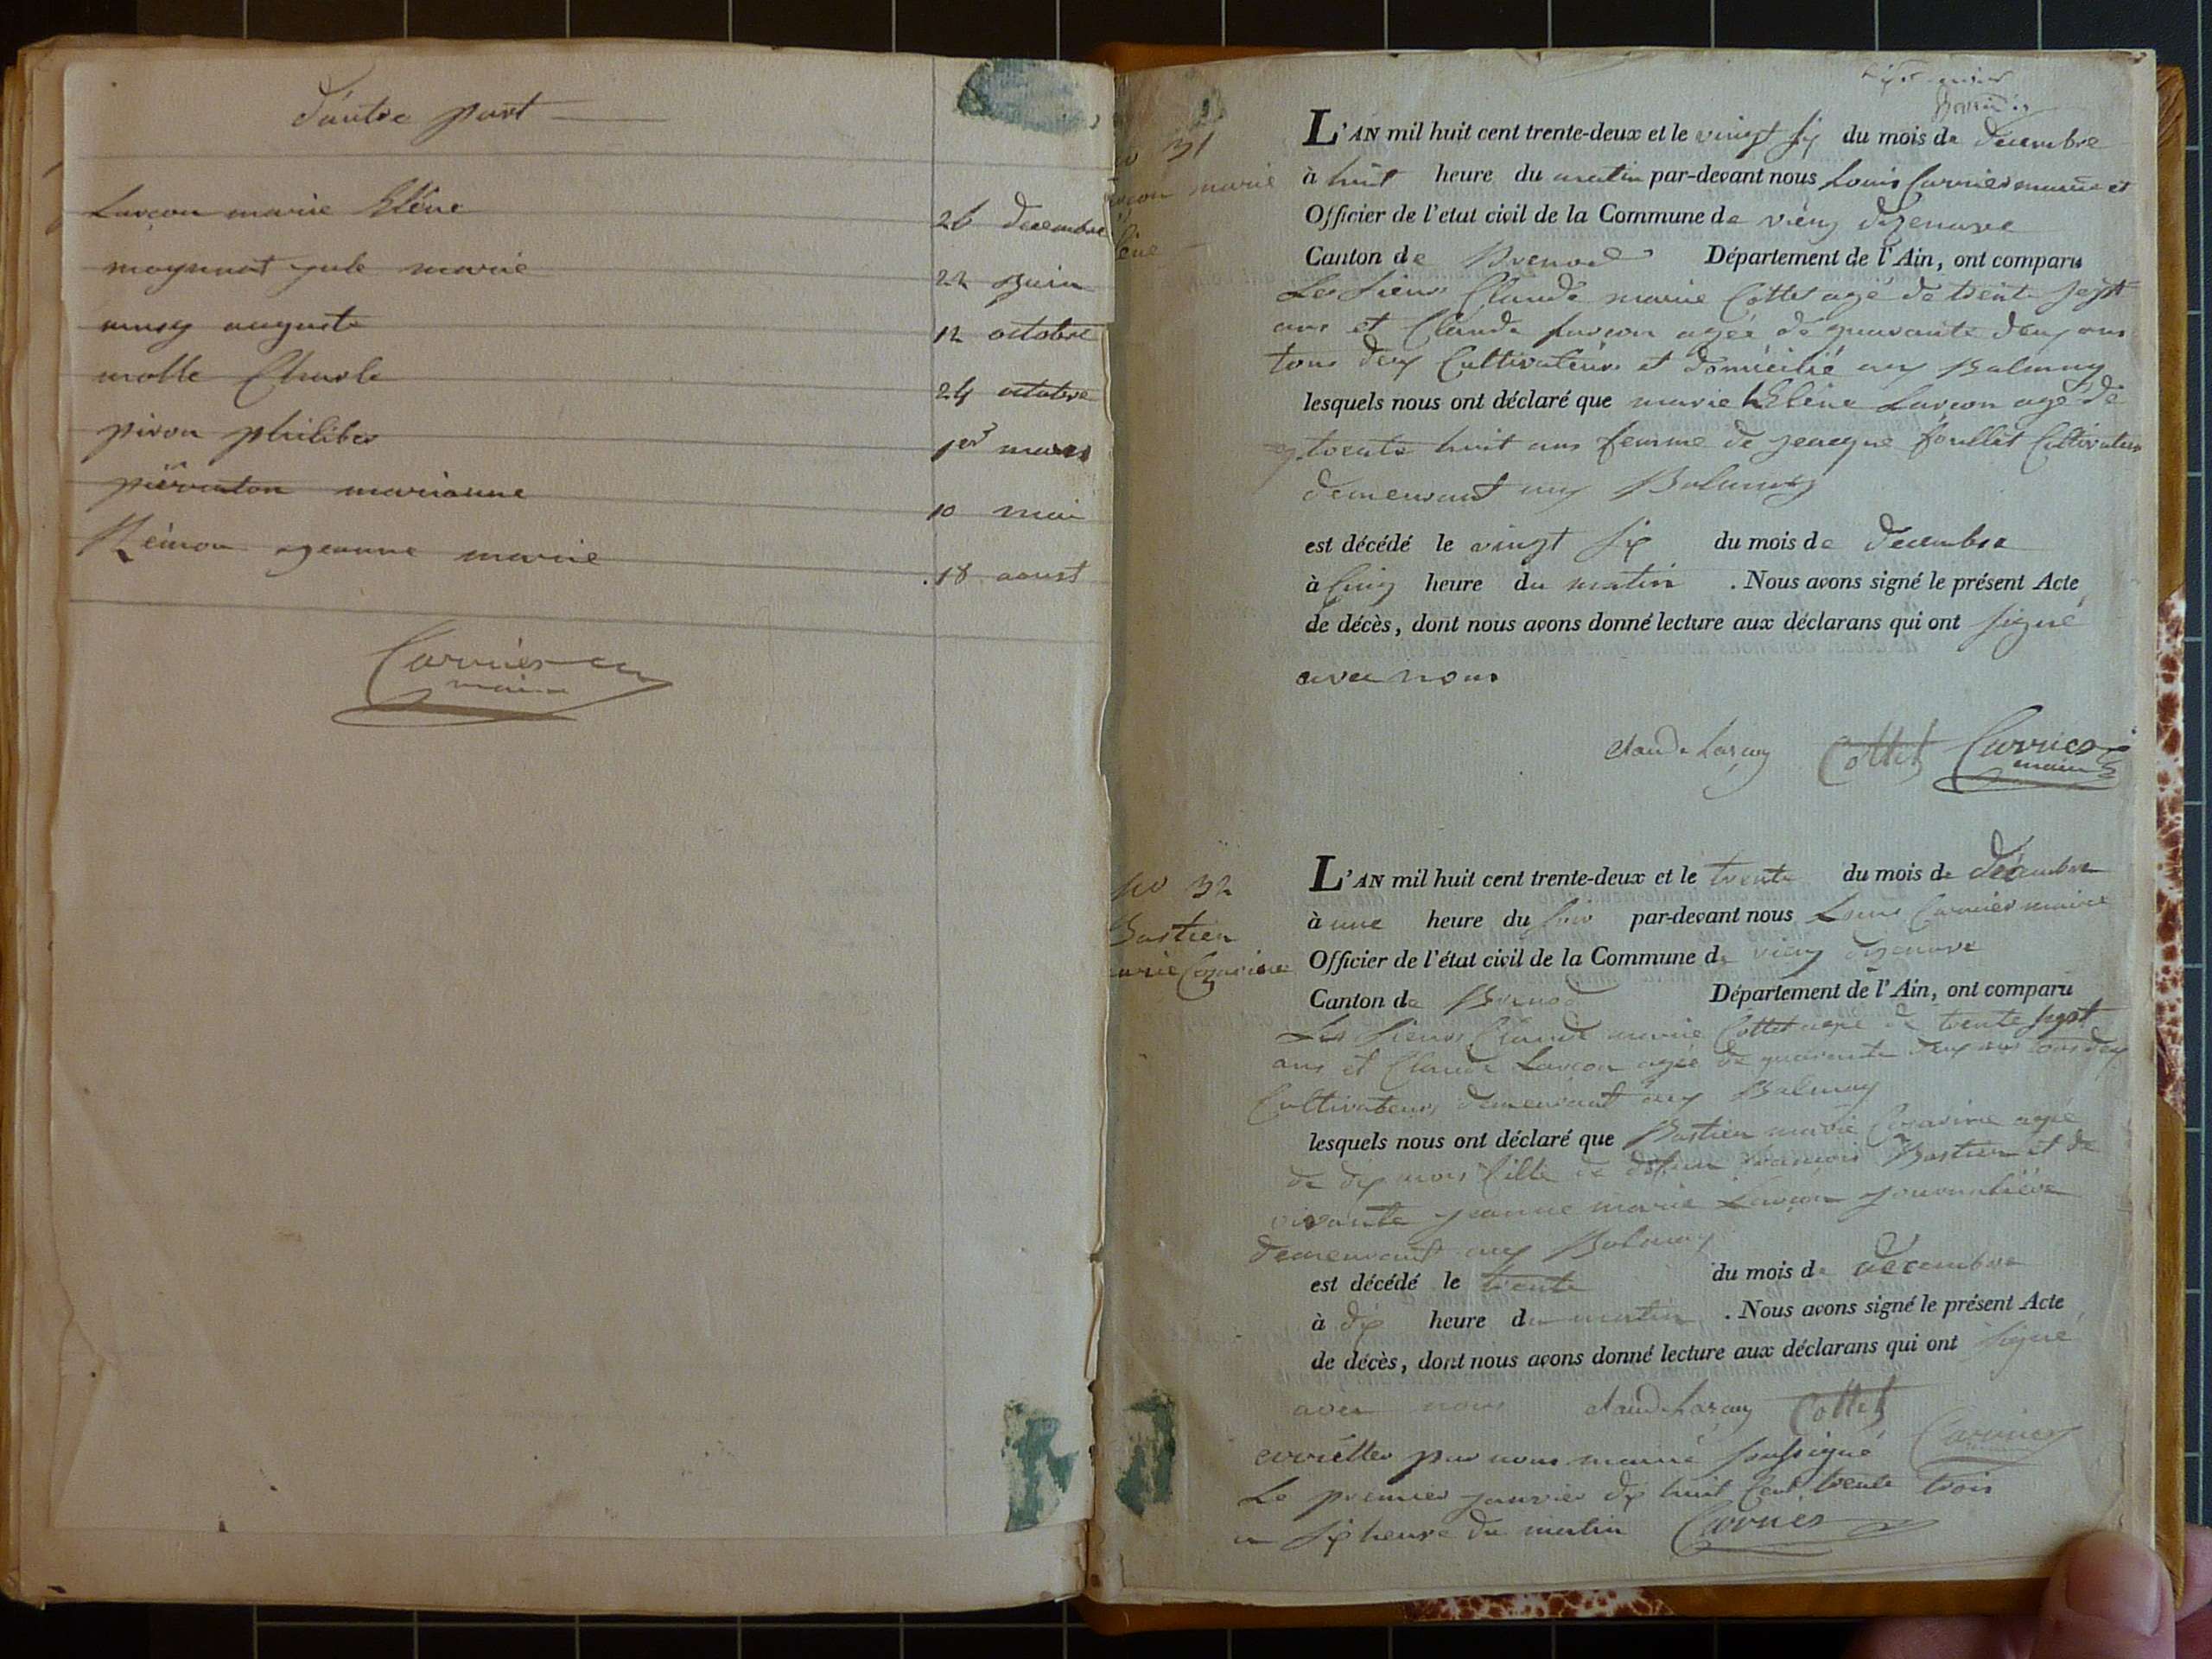 d'autre part
Larçon marie Eléne 26 decembre
moynnat jule marie 22 Juin
musy auguste 12 octobre
molle Charle 24 octobre
piron philiber 1er mars
marianne 10 mai
Rémon jeanne marie 18 aoust
Carrier
maire
no 31
arçon marie
léne
L'AN mil huit cent trente-deux et le vingt six du mois de decembre
à huit heure du matin par-devant nous Louis Carrier maire et
Officier de l'etat civil de la Commune de vieu dizenave
Canton de Brenod Département de l'Ain, ont comparu
Les sieur Claude marie Cottet agé de trente sept
ans et Claude Larçon agée de quarante deux ans
tous deux Cultivateur et domicilié aux Balmay
lesquels nous ont déclaré que marie Eléne Larçon agé de
trente huit ans femme de jeacque foullit Cultivateur
demeurant aux Balmay
est décédé le vingt six du mois de decembre
à Cinq heure du matin . Nous avons signé le présent Acte
de décès, dont nous avons donné lecture aux déclarans qui ont signé
avec nous
claude Larçon Cottet Carrier
maire
no 32
Bastien
arie Cezarine
L'AN mil huit cent trente-deux et le trente du mois de décembre
à une heure du soir par-devant nous Louis Carrier maire
Officier de l'état civil de la Commune de vieu dizenave
Canton de Brenod Département de l'Ain, ont comparu
Les sieur Claude marie Cottet agé de trente sept
ans et Claude Larçon agée de quarante deux ans tous deux
Cultivateur demeurant aux Balmay
lesquels nous ont déclaré que Bastien marie Cezarine agée
de dix mois fille de défeun francois Bastien et de
vivante jeanne marie Larçon journaliére
demeurant aux Balmay
est décédé le trente du mois de décembre
à dix heure du matin . Nous avons signé le présent Acte
de décès, dont nous avons donné lecture aux déclarans qui ont signé
avec nous claude Larçon Cottet
Carrier
par nous maire sousigné
Le premier janvier dix huit Cent trente trois
a six heure du matin Carrier